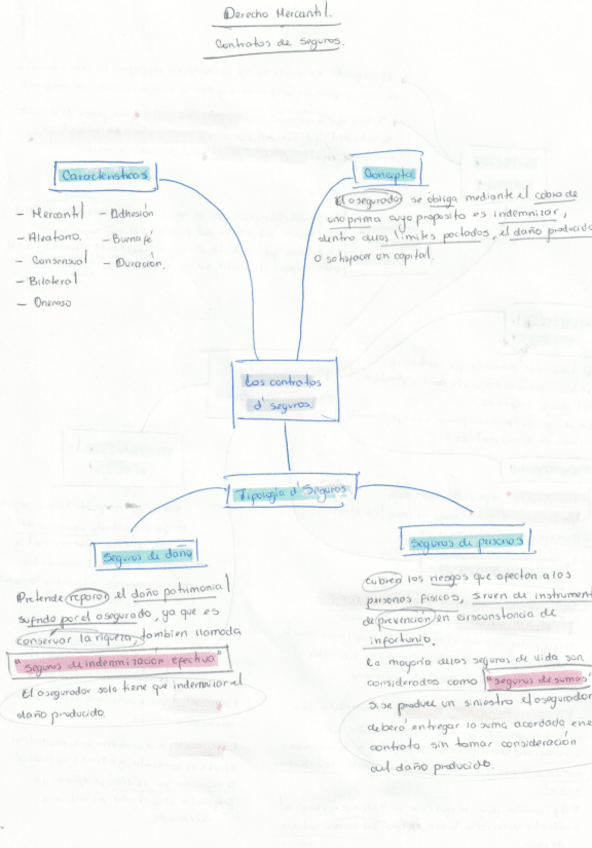 Derecho Mercantil.
Contratos de seguros.
Características
- Mercantil - Adhesión
- Aleatorio. - Buena fé
- Consensual - Duración.
- Bilateral
- Oneroso
Concepto
El asegurador se obliga mediante el cobro de
una prima cuyo proposito es indemnizar,
dentro de los límites pactados, el daño producido
o satisfacer un capital.
Los contratos
d' seguros.
Tipología d' Seguros
Seguros de daño
Pretende reparar el daño patrimonial
sufrido por el asegurado, ya que es
conservar la riqueza, tambien llamada
"Seguros de indemnizacion efectiva"
El asegurador solo tiene que indemnizar el
daño producido.
Seguros de personas
Cubren los riesgos que afectan a las
personas físicas, sirven de instrument
de prevención en circunstancia de
infortunio.
La mayoría de los seguros de vida son
considerados como "seguros de sumas"
Si se produce un siniestro el asegurador
deberá entregar la suma acordada en el
contrato sin tomar consideración
del daño producido.